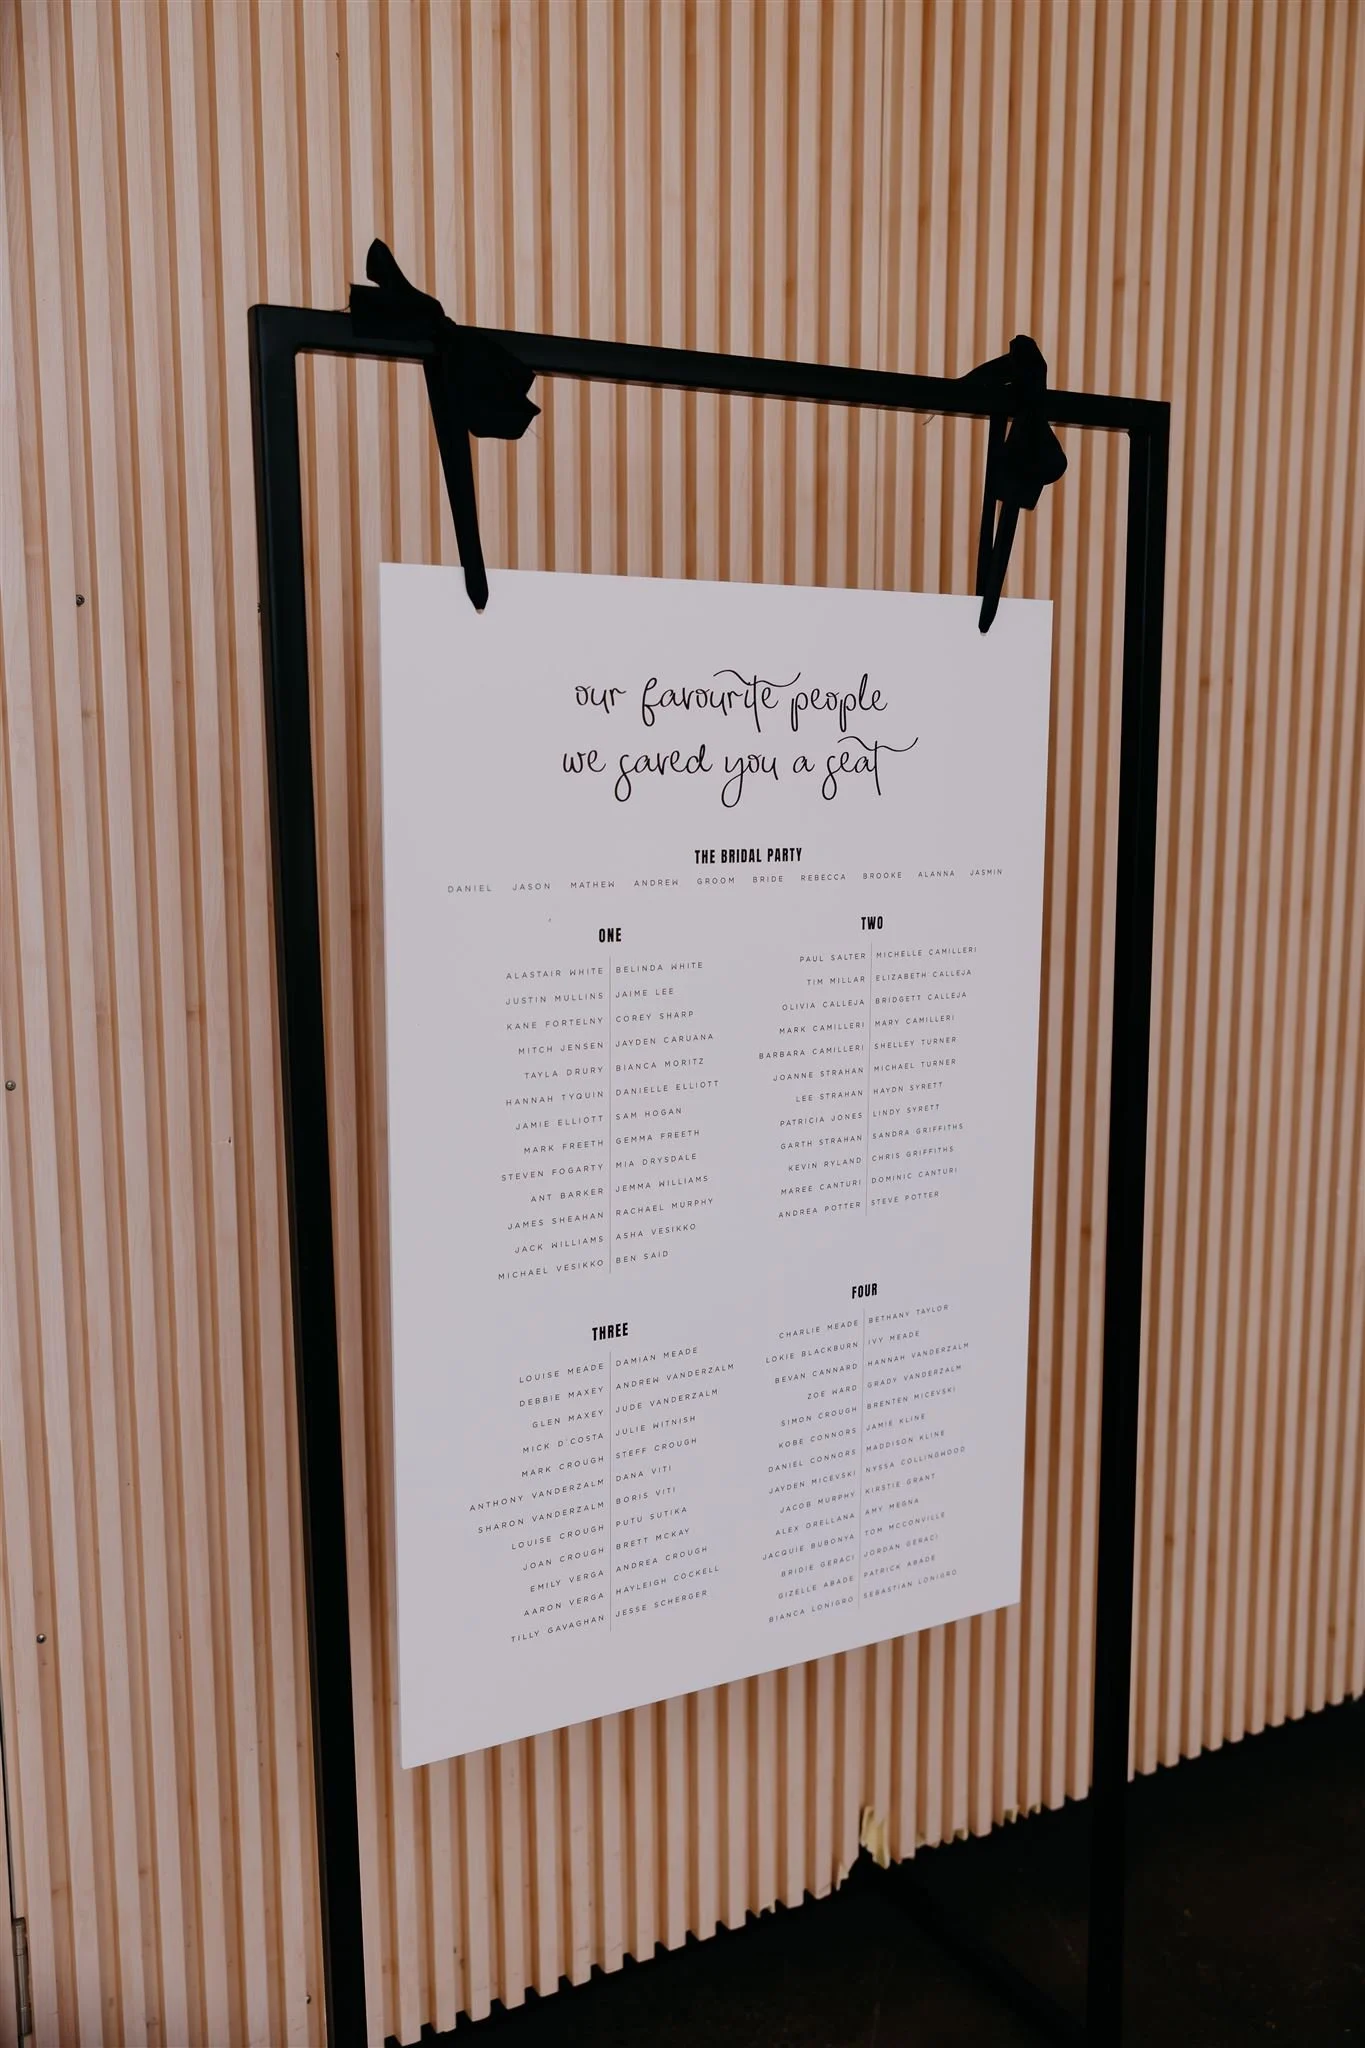 our favourite people
we saved you a seat
THE BRIDAL PARTY
DANIEL JASON MATHEW ANDREW GROOM BRIDE REBECCA BROOKE ALANNA JASMIN
ONE
ALASTAIR WHITE BELINDA WHITE
JUSTIN MULLINS JAIME LEE
KANE FORTELNY COREY SHARP
MITCH JENSEN JAYDEN CARUANA
TAYLA DRURY BIANCA MORITZ
HANNAH TYQUIN DANIELLE ELLIOTT
JAMIE ELLIOTT SAM HOGAN
MARK FREETH GEMMA FREETH
STEVEN FOGARTY MIA DRYSDALE
ANT BARKER JEMMA WILLIAMS
JAMES SHEAHAN RACHAEL MURPHY
JACK WILLIAMS ASHA VESIKKO
MICHAEL VESIKKO BEN SAID
TWO
PAUL SALTER MICHELLE CAMILLERI
TIM MILLAR ELIZABETH CALLEJA
OLIVIA CALLEJA BRIDGETT CALLEJA
MARK CAMILLERI MARY CAMILLERI
BARBARA CAMILLERI SHELLEY TURNER
JOANNE STRAHAN MICHAEL TURNER
LEE STRAHAN HAYDN SYRETT
PATRICIA JONES LINDY SYRETT
GARTH STRAHAN SANDRA GRIFFITHS
KEVIN RYLAND CHRIS GRIFFITHS
MAREE CANTURI DOMINIC CANTURI
ANDREA POTTER STEVE POTTER
THREE
LOUISE MEADE DAMIAN MEADE
DEBBIE MAXEY ANDREW VANDERZALM
GLEN MAXEY JUDE VANDERZALM
MICK D'COSTA JULIE WITNISH
MARK CROUGH STEFF CROUGH
ANTHONY VANDERZALM DANA VITI
SHARON VANDERZALM BORIS VITI
LOUISE CROUGH PUTU SUTIKA
JOAN CROUGH BRETT MCKAY
EMILY VERGA ANDREA CROUGH
AARON VERGA HAYLEIGH COCKELL
TILLY GAVAGHAN JESSE SCHERGER
FOUR
CHARLIE MEADE BETHANY TAYLOR
LOKIE BLACKBURN IVY MEADE
BEVAN CANNARD HANNAH VANDERZALM
ZOE WARD GRADY VANDERZALM
SIMON CROUGH BRENTEN MICEVSKI
KOBE CONNORS JAMIE KLINE
DANIEL CONNORS MADDISON KLINE
JAYDEN MICEVSKI NYSSA COLLINGWOOD
JACOB MURPHY KIRSTIE GRANT
ALEX ORELLANA AMY MEGNA
JACQUIE BUBONYA TOM MCCONVILLE
BRIDIE GERACI JORDAN GERACI
GIZELLE ABADE PATRICK ABADE
BIANCA LONIGRO SEBASTIAN LONIGRO